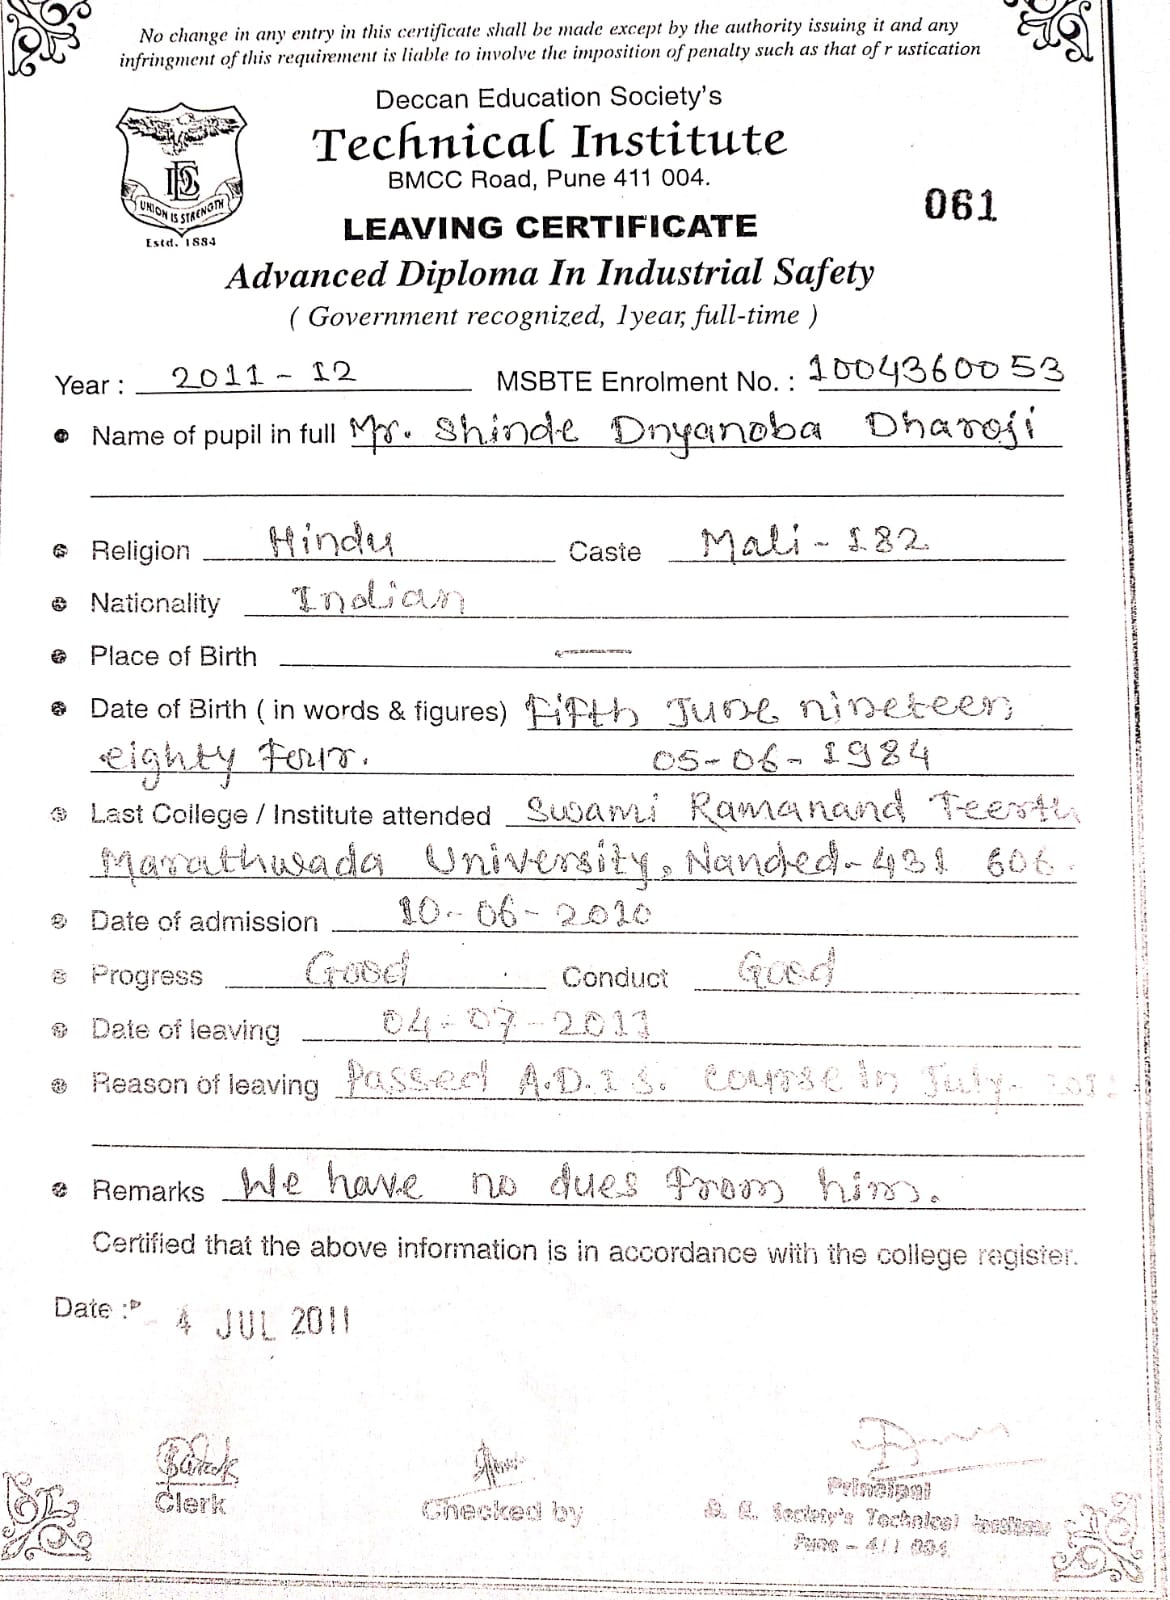 No change in any entry in this certificate shall be made except by the authority issuing it and any
infringment of this requirement is liable to involve the imposition of penalty such as that of r ustication
Deccan Education Society's
Technical Institute
BMCC Road, Pune 411 004.
DES
UNION IS STRENGTH
Estd. 1884
061
LEAVING CERTIFICATE
Advanced Diploma In Industrial Safety
( Government recognized, 1year, full-time )
Year : 2011 - 12 MSBTE Enrolment No. : 1004360053
Name of pupil in full Mr. Shinde Dnyanoba Dharoji
Religion Hindu Caste Mali - 182
Nationality Indian
Place of Birth
Date of Birth ( in words & figures) Fifth June nineteen
eighty Four. 05-06-1984
Last College / Institute attended Swami Ramanand Teerth
Marathwada University, Nanded-431 606.
Date of admission 10-06-2010
Progress Good Conduct Good
Date of leaving 04-07-2011
Reason of leaving Passed A.D.I.S. course in July-
Remarks We have no dues from him.
Certified that the above information is in accordance with the college register.
Date : - 4 JUL 2011
Clerk
Checked by
Principal
D. E. Society's Technical Institute
Pune - 411 004.